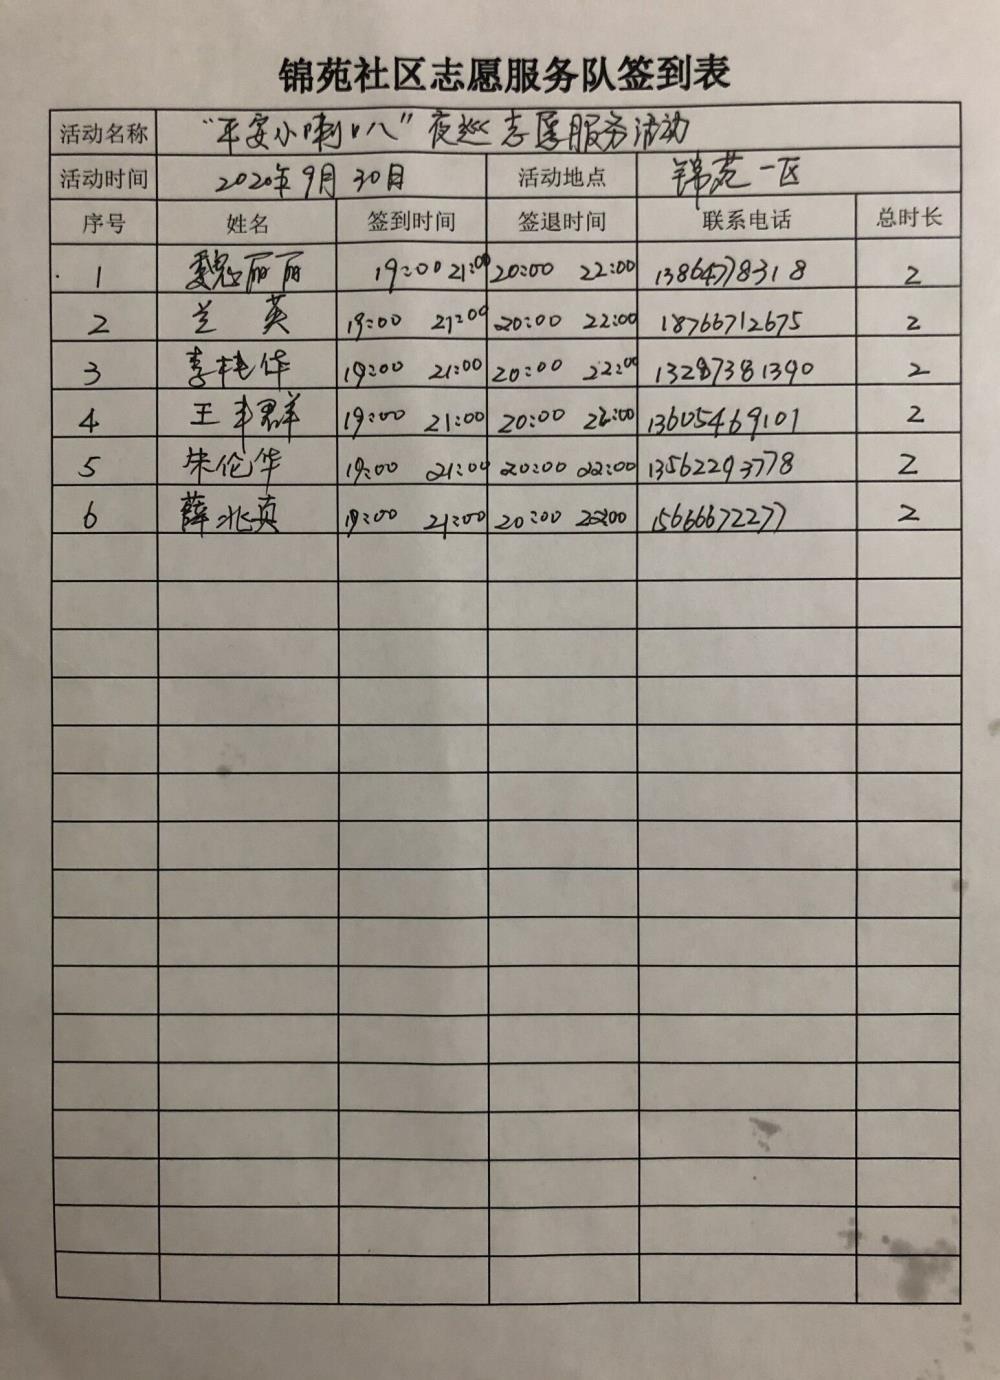 锦苑社区志愿服务队签到表
活动名称 “平安小喇叭”夜巡志愿服务活动
活动时间 2020年9月30日 活动地点 锦苑一区
序号 姓名 签到时间 签退时间 联系电话 总时长
1 魏丽丽 19:00 21:00 20:00 22:00 13864778318 2
2 兰英 19:00 21:00 20:00 22:00 18766712675 2
3 李桂华 19:00 21:00 20:00 22:00 13287381390 2
4 王丰群 19:00 21:00 20:00 22:00 13605469101 2
5 朱伦华 19:00 21:00 20:00 22:00 13562293778 2
6 薛兆英 19:00 21:00 20:00 22:00 15666672277 2